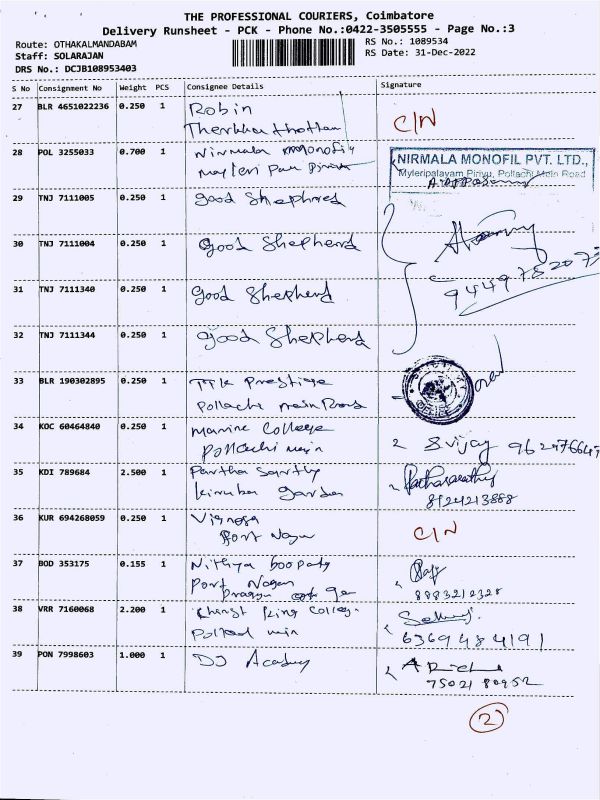 THE PROFESSIONAL COURIERS, Coimbatore
Delivery Runsheet - PCK - Phone No.:0422-3505555 - Page No.:3
Route: OTHAKALMANDABAM
RS No.: 1089534
Staff: SOLARAJAN
RS Date: 31-Dec-2022
DRS No.: DCJB108953403
S No Consignment No Weight PCS Consignee Details Signature
27 BLR 4651022236 0.250 1 Robin
C/N
28 POL 3255033 0.700 1 Nirmala monofil
NIRMALA MONOFIL PVT. LTD.,
Myleripalayam Pirivu, Pollachi Main Road
29 TNJ 7111005 0.250 1 good Shephred
30 TNJ 7111004 0.250 1 Good Shepherd
31 TNJ 7111340 0.250 1 Good Shepherd
32 TNJ 7111344 0.250 1 good Shepherd
33 BLR 190302895 0.250 1 TTK Prestige
Pollachi main Road
34 KOC 60464840 0.250 1 marine College
Pollachi main
S vijay
35 KDI 789684 2.500 1 Partha Sarthy
Kiruba garden
8124213888
36 KUR 694268059 0.250 1
Port Nagar
C/N
37 BOD 353175 0.155 1 Nithya boopaty
Port Nagar
38 VRR 7160068 2.200 1 King College
main
6369484191
39 PON 7998603 1.000 1 DJ Academy
75021 80952
2